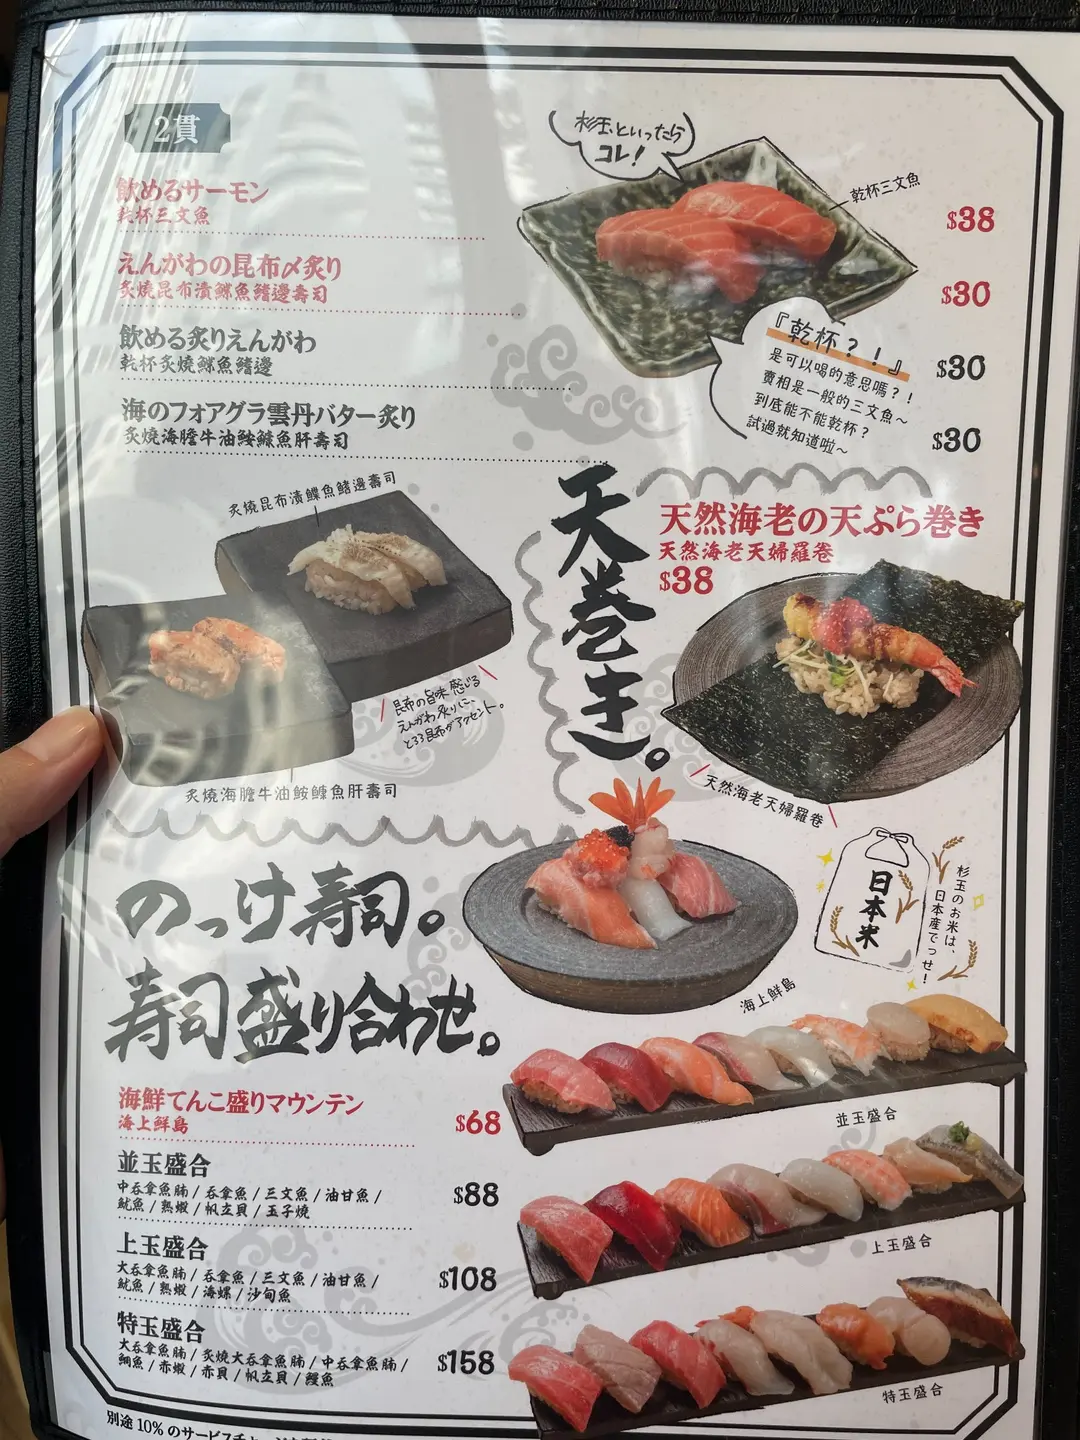 2貫
飲めるサーモン
乾杯三文魚
$38
えんがわの昆布〆炙り
炙燒昆布漬鰈魚鰭邊壽司
$30
飲める炙りえんがわ
乾杯炙燒鰈魚鰭邊
$30
海のフォアグラ雲丹バター炙り
炙燒海膽牛油鮟鱇魚肝壽司
$30
杉玉といったら
コレ!
乾杯三文魚
『乾杯?!』
是可以喝的意思嗎?!
賣相是一般的三文魚~
到底能不能乾杯?
試過就知道啦~
炙燒昆布漬鰈魚鰭邊壽司
昆布の旨味感じる
えんがわ炙りに、
とろろ昆布がアクセント。
炙燒海膽牛油鮟鱇魚肝壽司
天巻き。
天然海老の天ぷら巻き
天然海老天婦羅卷
$38
天然海老天婦羅卷
日本米
杉玉のお米は、
日本産でっせ!
海上鮮島
のっけ寿司。
寿司盛り合わせ。
海鮮てんこ盛りマウンテン
海上鮮島
$68
並玉盛合
中吞拿魚腩/吞拿魚/三文魚/油甘魚/
魷魚/熟蝦/帆立貝/玉子燒
$88
上玉盛合
大吞拿魚腩/吞拿魚/三文魚/油甘魚/
魷魚/熟蝦/海螺/沙甸魚
$108
特玉盛合
大吞拿魚腩/炙燒大吞拿魚腩/中吞拿魚腩/
鯛魚/赤蝦/赤貝/帆立貝/鰻魚
$158
並玉盛合
上玉盛合
特玉盛合
別途10%のサービスチャージ